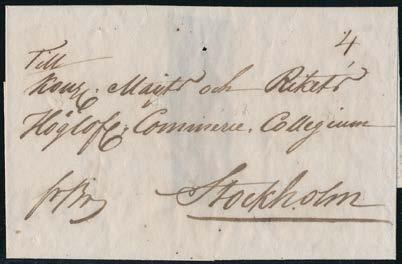 4
Till
Kongl. Maijts och Rikets
Höglofl. Commerce. Collegium
Stockholm